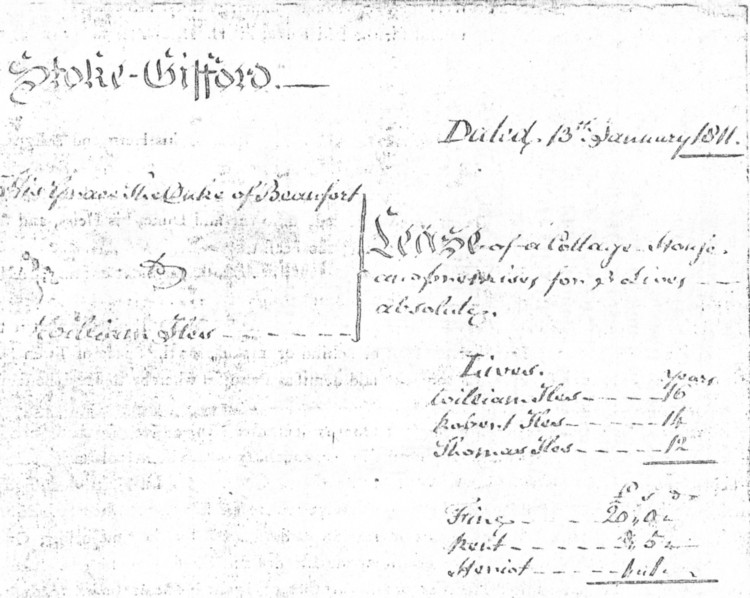 Stoke-Gifford.
Dated, 13th January 1811.
His Grace the Duke of Beaufort
to
William Iles
Lease of a Cottage House
and premises for 3 Lives
absolute.
Lives. Years
William Iles 16
Robert Iles 14
Thomas Iles 12
£ s d
Fine 20,0
Rent 5
Heriot